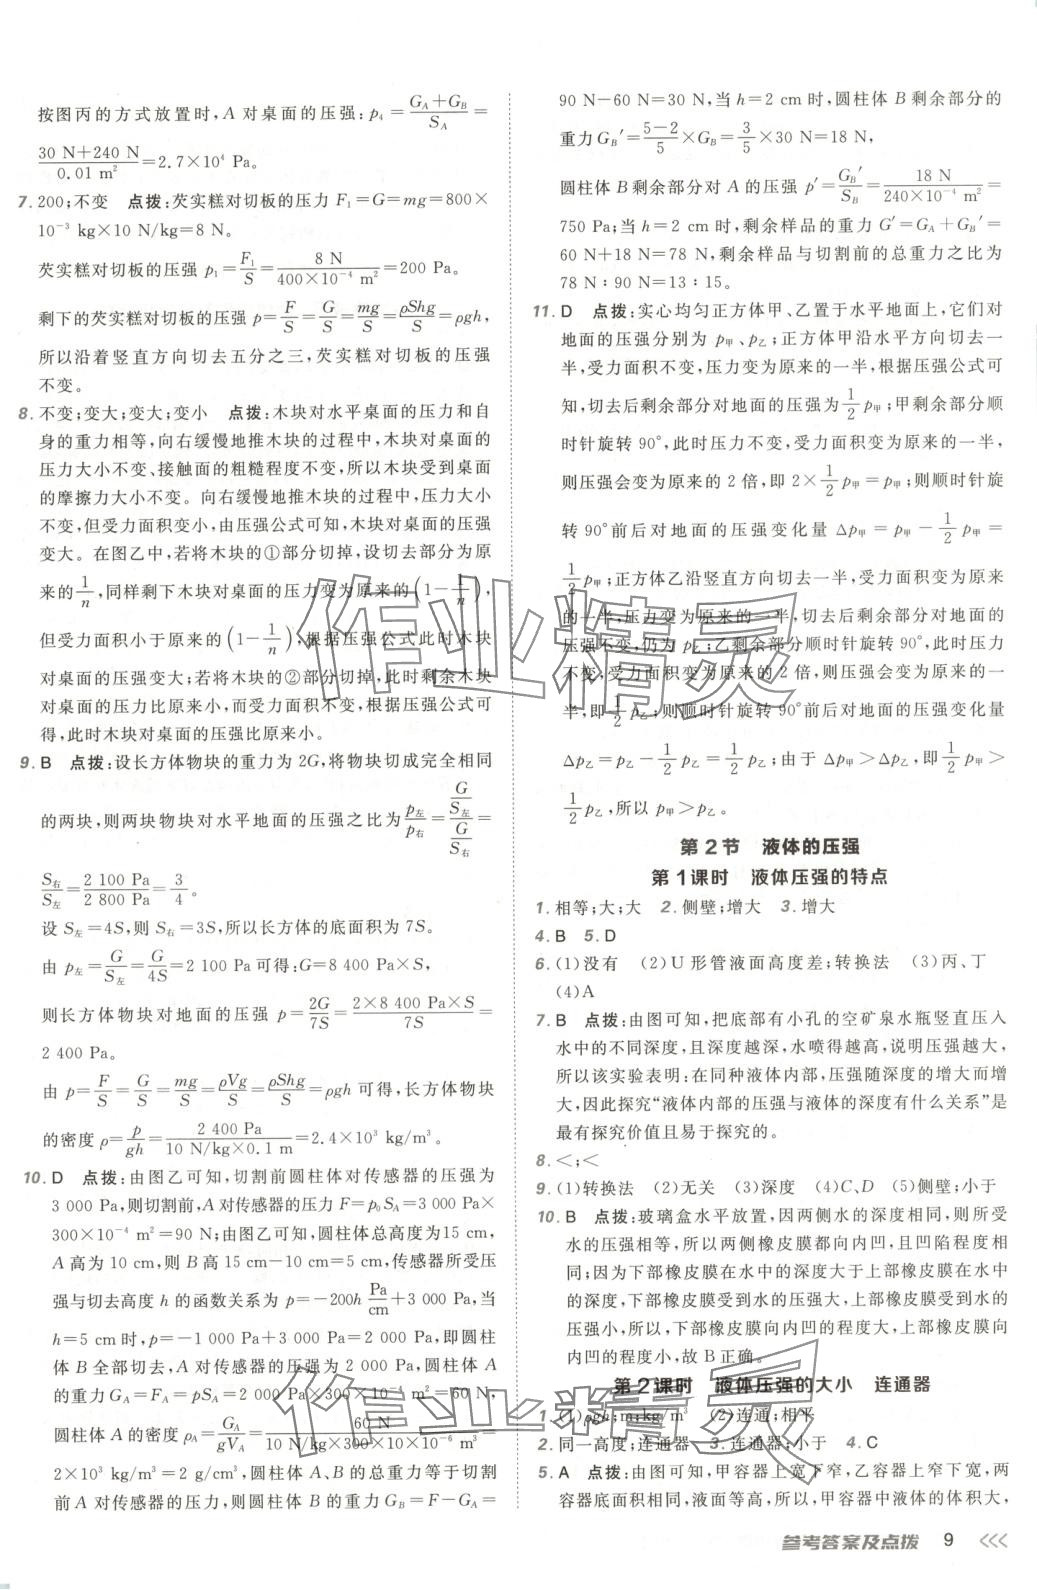 按图丙的方式放置时,A 对桌面的压强:p₄ = (G_A+G_B)/S_A =
(30 N+240 N)/(0.01 m²)=2.7×10⁴ Pa。
7. 200;不变　点拨:芡实糕对切板的压力 F₁=G=mg=800×
10⁻³ kg×10 N/kg=8 N。
芡实糕对切板的压强 p₁=F₁/S=8 N/(400×10⁻⁴ m²)=200 Pa。
剩下的芡实糕对切板的压强 p=F/S=G/S=mg/S=ρShg/S=ρgh,
所以沿着竖直方向切去五分之三,芡实糕对切板的压强
不变。
8. 不变;变大;变大;变小　点拨:木块对水平桌面的压力和自
身的重力相等,向右缓慢地推木块的过程中,木块对桌面的
压力大小不变、接触面的粗糙程度不变,所以木块受到桌面
的摩擦力大小不变。向右缓慢地推木块的过程中,压力大小
不变,但受力面积变小,由压强公式可知,木块对桌面的压强
变大。在图乙中,若将木块的①部分切掉,设切去部分为原
来的1/n,同样剩下木块对桌面的压力变为原来的(1-1/n),
但受力面积小于原来的(1-1/n);根据压强公式此时木块
对桌面的压强变大;若将木块的②部分切掉,此时剩余木块
对桌面的压力比原来小,而受力面积不变,根据压强公式可
得,此时木块对桌面的压强比原来小。
9. B　点拨:设长方体物块的重力为 2G,将物块切成完全相同
的两块,则两块物块对水平地面的压强之比为p左/p右=(G/S左)/(G/S右)=
S右/S左=2 100 Pa/2 800 Pa=3/4。
设 S左=4S,则 S右=3S,所以长方体的底面积为 7S。
由 p左=G/S左=G/4S=2 100 Pa可得:G=8 400 Pa×S,
则长方体物块对地面的压强 p=2G/7S=(2×8 400 Pa×S)/7S=
2 400 Pa。
由 p=F/S=G/S=mg/S=ρVg/S=ρShg/S=ρgh 可得,长方体物块
的密度 ρ=p/gh=2 400 Pa/(10 N/kg×0.1 m)=2.4×10³ kg/m³。
10. D　点拨:由图乙可知,切割前圆柱体对传感器的压强为
3 000 Pa,则切割前,A 对传感器的压力 F=p₀S_A=3 000 Pa×
300×10⁻⁴ m²=90 N;由图乙可知,圆柱体总高度为 15 cm,
A 高为 10 cm,则 B 高 15 cm-10 cm=5 cm,传感器所受压
强与切去高度 h 的函数关系为 p=-200h Pa/cm+3 000 Pa,当
h=5 cm 时,p=-1 000 Pa+3 000 Pa=2 000 Pa,即圆柱
体 B 全部切去,A 对传感器的压强为 2 000 Pa,圆柱体 A
的重力 G_A=F_A=pS_A=2 000 Pa×300×10⁻⁴ m²=60 N,
圆柱体 A 的密度 ρ_A=G_A/gV_A=60 N/(10 N/kg×300×10×10⁻⁶ m³)=
2×10³ kg/m³=2 g/cm³,圆柱体 A、B 的总重力等于切割
前 A 对传感器的压力,则圆柱体 B 的重力 G_B=F-G_A=
90 N-60 N=30 N,当 h=2 cm 时,圆柱体 B 剩余部分的
重力 G_B′=(5-2)/5×G_B=3/5×30 N=18 N,
圆柱体 B 剩余部分对 A 的压强 p′=G_B′/S_B=18 N/(240×10⁻⁴ m²)=
750 Pa;当 h=2 cm 时,剩余样品的重力 G′=G_A+G_B′=
60 N+18 N=78 N,剩余样品与切割前的总重力之比为
78 N∶90 N=13∶15。
11. D　点拨:实心均匀正方体甲、乙置于水平地面上,它们对
地面的压强分别为 p甲、p乙;正方体甲沿水平方向切去一
半,受力面积不变,压力变为原来的一半,根据压强公式可
知,切去后剩余部分对地面的压强为1/2p甲;甲剩余部分顺
时针旋转 90°,此时压力不变,受力面积变为原来的一半,
则压强会变为原来的 2 倍,即 2×1/2p甲=p甲;则顺时针旋
转 90°前后对地面的压强变化量 Δp甲=p甲-1/2p甲=
1/2p甲;正方体乙沿竖直方向切去一半,受力面积变为原来
的一半,压力变为原来的一半,切去后剩余部分对地面的
压强不变,仍为 p乙;乙剩余部分顺时针旋转 90°,此时压力
不变,受力面积变为原来的 2 倍,则压强会变为原来的一
半,即1/2p乙;则顺时针旋转 90°前后对地面的压强变化量
Δp乙=p乙-1/2p乙=1/2p乙;由于 Δp甲>Δp乙,即1/2p甲>
1/2p乙,所以 p甲>p乙。
第 2 节　液体的压强
第 1 课时　液体压强的特点
1. 相等;大;大　2. 侧壁;增大　3. 增大
4. B　5. D
6. (1)没有　(2)U 形管液面高度差;转换法　(3)丙、丁
(4)A
7. B　点拨:由图可知,把底部有小孔的空矿泉水瓶竖直压入
水中的不同深度,且深度越深,水喷得越高,说明压强越大,
所以该实验表明:在同种液体内部,压强随深度的增大而增
大,因此探究“液体内部的压强与液体的深度有什么关系”是
最有探究价值且易于探究的。
8. <;<
9. (1)转换法　(2)无关　(3)深度　(4)C、D　(5)侧壁;小于
10. B　点拨:玻璃盒水平放置,因两侧水的深度相同,则所受
水的压强相等,所以两侧橡皮膜都向内凹,且凹陷程度相
同;因为下部橡皮膜在水中的深度大于上部橡皮膜在水中
的深度,下部橡皮膜受到水的压强大,上部橡皮膜受到水的
压强小,所以,下部橡皮膜向内凹的程度大,上部橡皮膜向
内凹的程度小,故 B 正确。
第 2 课时　液体压强的大小　连通器
1. (1)ρgh;m;kg/m³　(2)连通;相平
2. 同一高度;连通器　3. 连通器;小于　4. C
5. A　点拨:由图可知,甲容器上宽下窄,乙容器上窄下宽,两
容器底面积相同,液面等高,所以,甲容器中液体的体积大,
参考答案及点拨　9
作业精灵
作业精灵